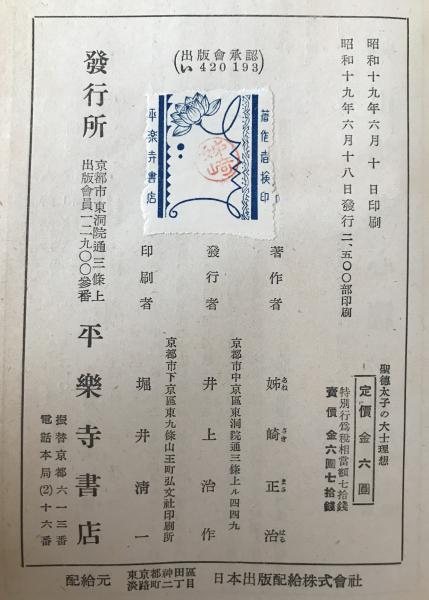 昭和十九年六月十日印刷
昭和十九年六月十八日發行二、五〇〇部印刷
(出版會承認
い420193)
著作者檢印
平樂寺書店
聖德太子の大士理想
定價金六圓
特別行爲税相當額七拾錢
賣價金六圓七拾錢
著作者 姉崎正治
あね さき まさ はる
京都市中京區東洞院通三條上ル四四九
發行者 井上治作
京都市下京區東九條山王町弘文社印刷所
印刷者 堀井淸一
發行所
京都市東洞院通三條上
出版會員一二九〇〇參番
平樂寺書店
振替京都六一三番
電話本局(2)十六番
配給元
東京都神田區
淡路町二丁目
日本出版配給株式會社